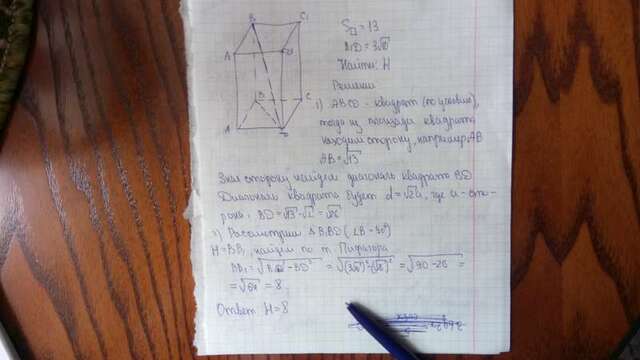 B₁ C₁
A₁ D₁
B C
A D
S□ = 13
B₁D = 3√10
Найти: H
Решение
1) ABCD - квадрат (по условию),
тогда из площади квадрата
находим сторону, например, AB
AB = √13
Зная сторону найдём диагональ квадрата BD
Диагональ квадрата будет d = √2a, где a - сто-
рона, BD = √13 · √2 = √26
2) Рассмотрим ΔB₁BD (∠B = 90°)
H = BB₁, найдём по т. Пифагора
BB₁ = √B₁D² - BD² = √(3√10)² - (√26)² = √90 - 26 =
= √64 = 8
Ответ: H = 8